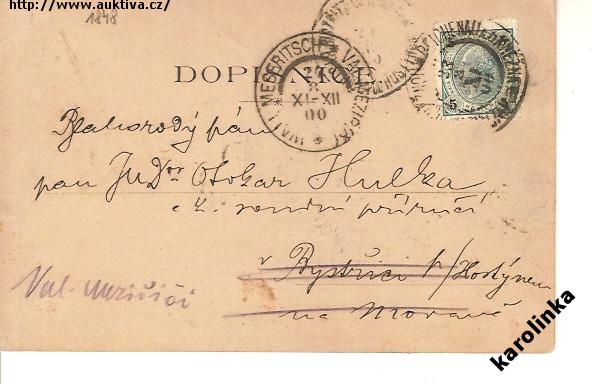 http://www.auktiva.cz/
1848
DOPISNICE
WALL. MESERITSCH * VAL. MEZIŘÍČÍ *
27
8
XI-XII
00
5
pán
pan JUDor Otokar Hulka
c. k. soudní příručí
v Bystřici p/Hostýnem
na Moravě
Val. Meziřičí
karolinka